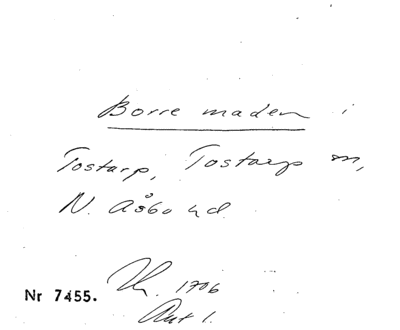 Borre maden i
Tostarp, Tostarp sn,
N. Åsbo hd
Nr 7455. 1706
Akt 1.